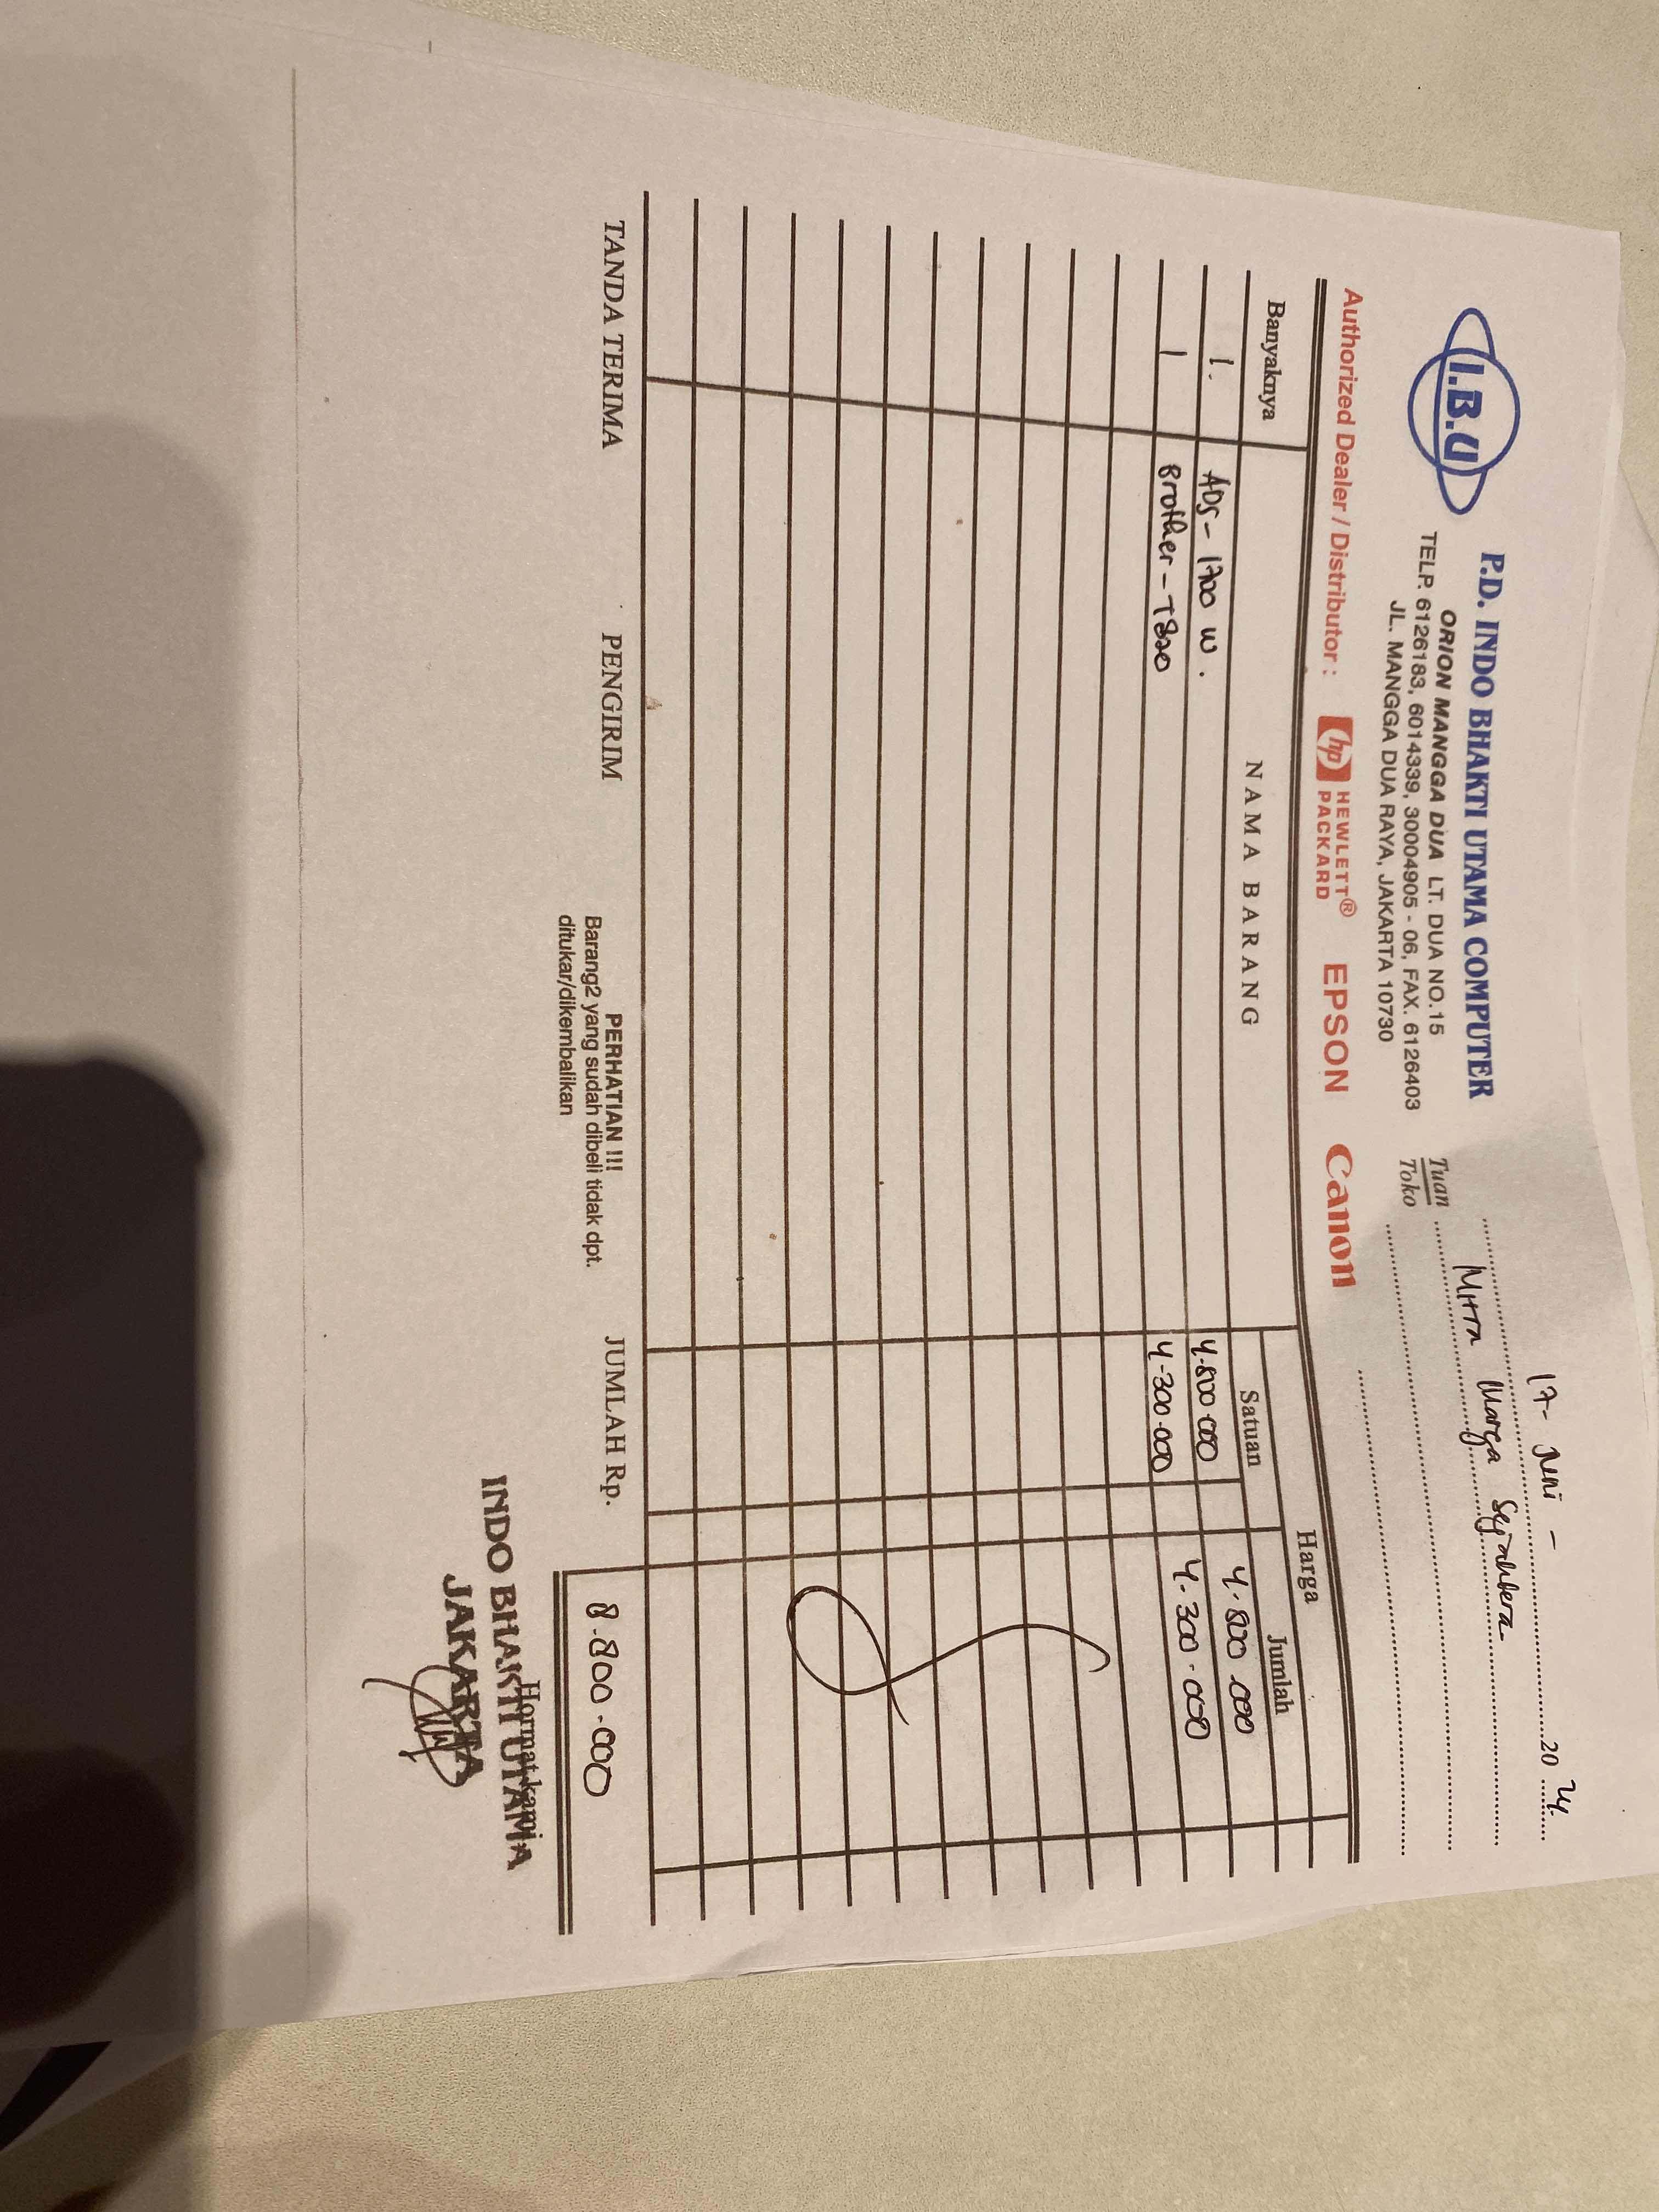 I.B.U
P.D. INDO BHAKTI UTAMA COMPUTER
ORION MANGGA DUA LT. DUA NO.15
TELP. 6126183, 6014339, 30004905 - 06, FAX. 6126403
JL. MANGGA DUA RAYA, JAKARTA 10730
17 - Juni - 20 24.
Tuan Mitra Marga Sejahtera
Toko
Authorized Dealer / Distributor : hp HEWLETT® PACKARD EPSON Canon
Banyaknya NAMA BARANG Harga
Satuan Jumlah
1. ADS - 1700 W. 4.800.000 4.800.000
1 Brother - T820 4.300.000 4.300.000
TANDA TERIMA PENGIRIM PERHATIAN !!! JUMLAH Rp. 8.800.000
Barang2 yang sudah dibeli tidak dpt.
ditukar/dikembalikan
Hormat kami,
INDO BHAKTI UTAMA
JAKARTA